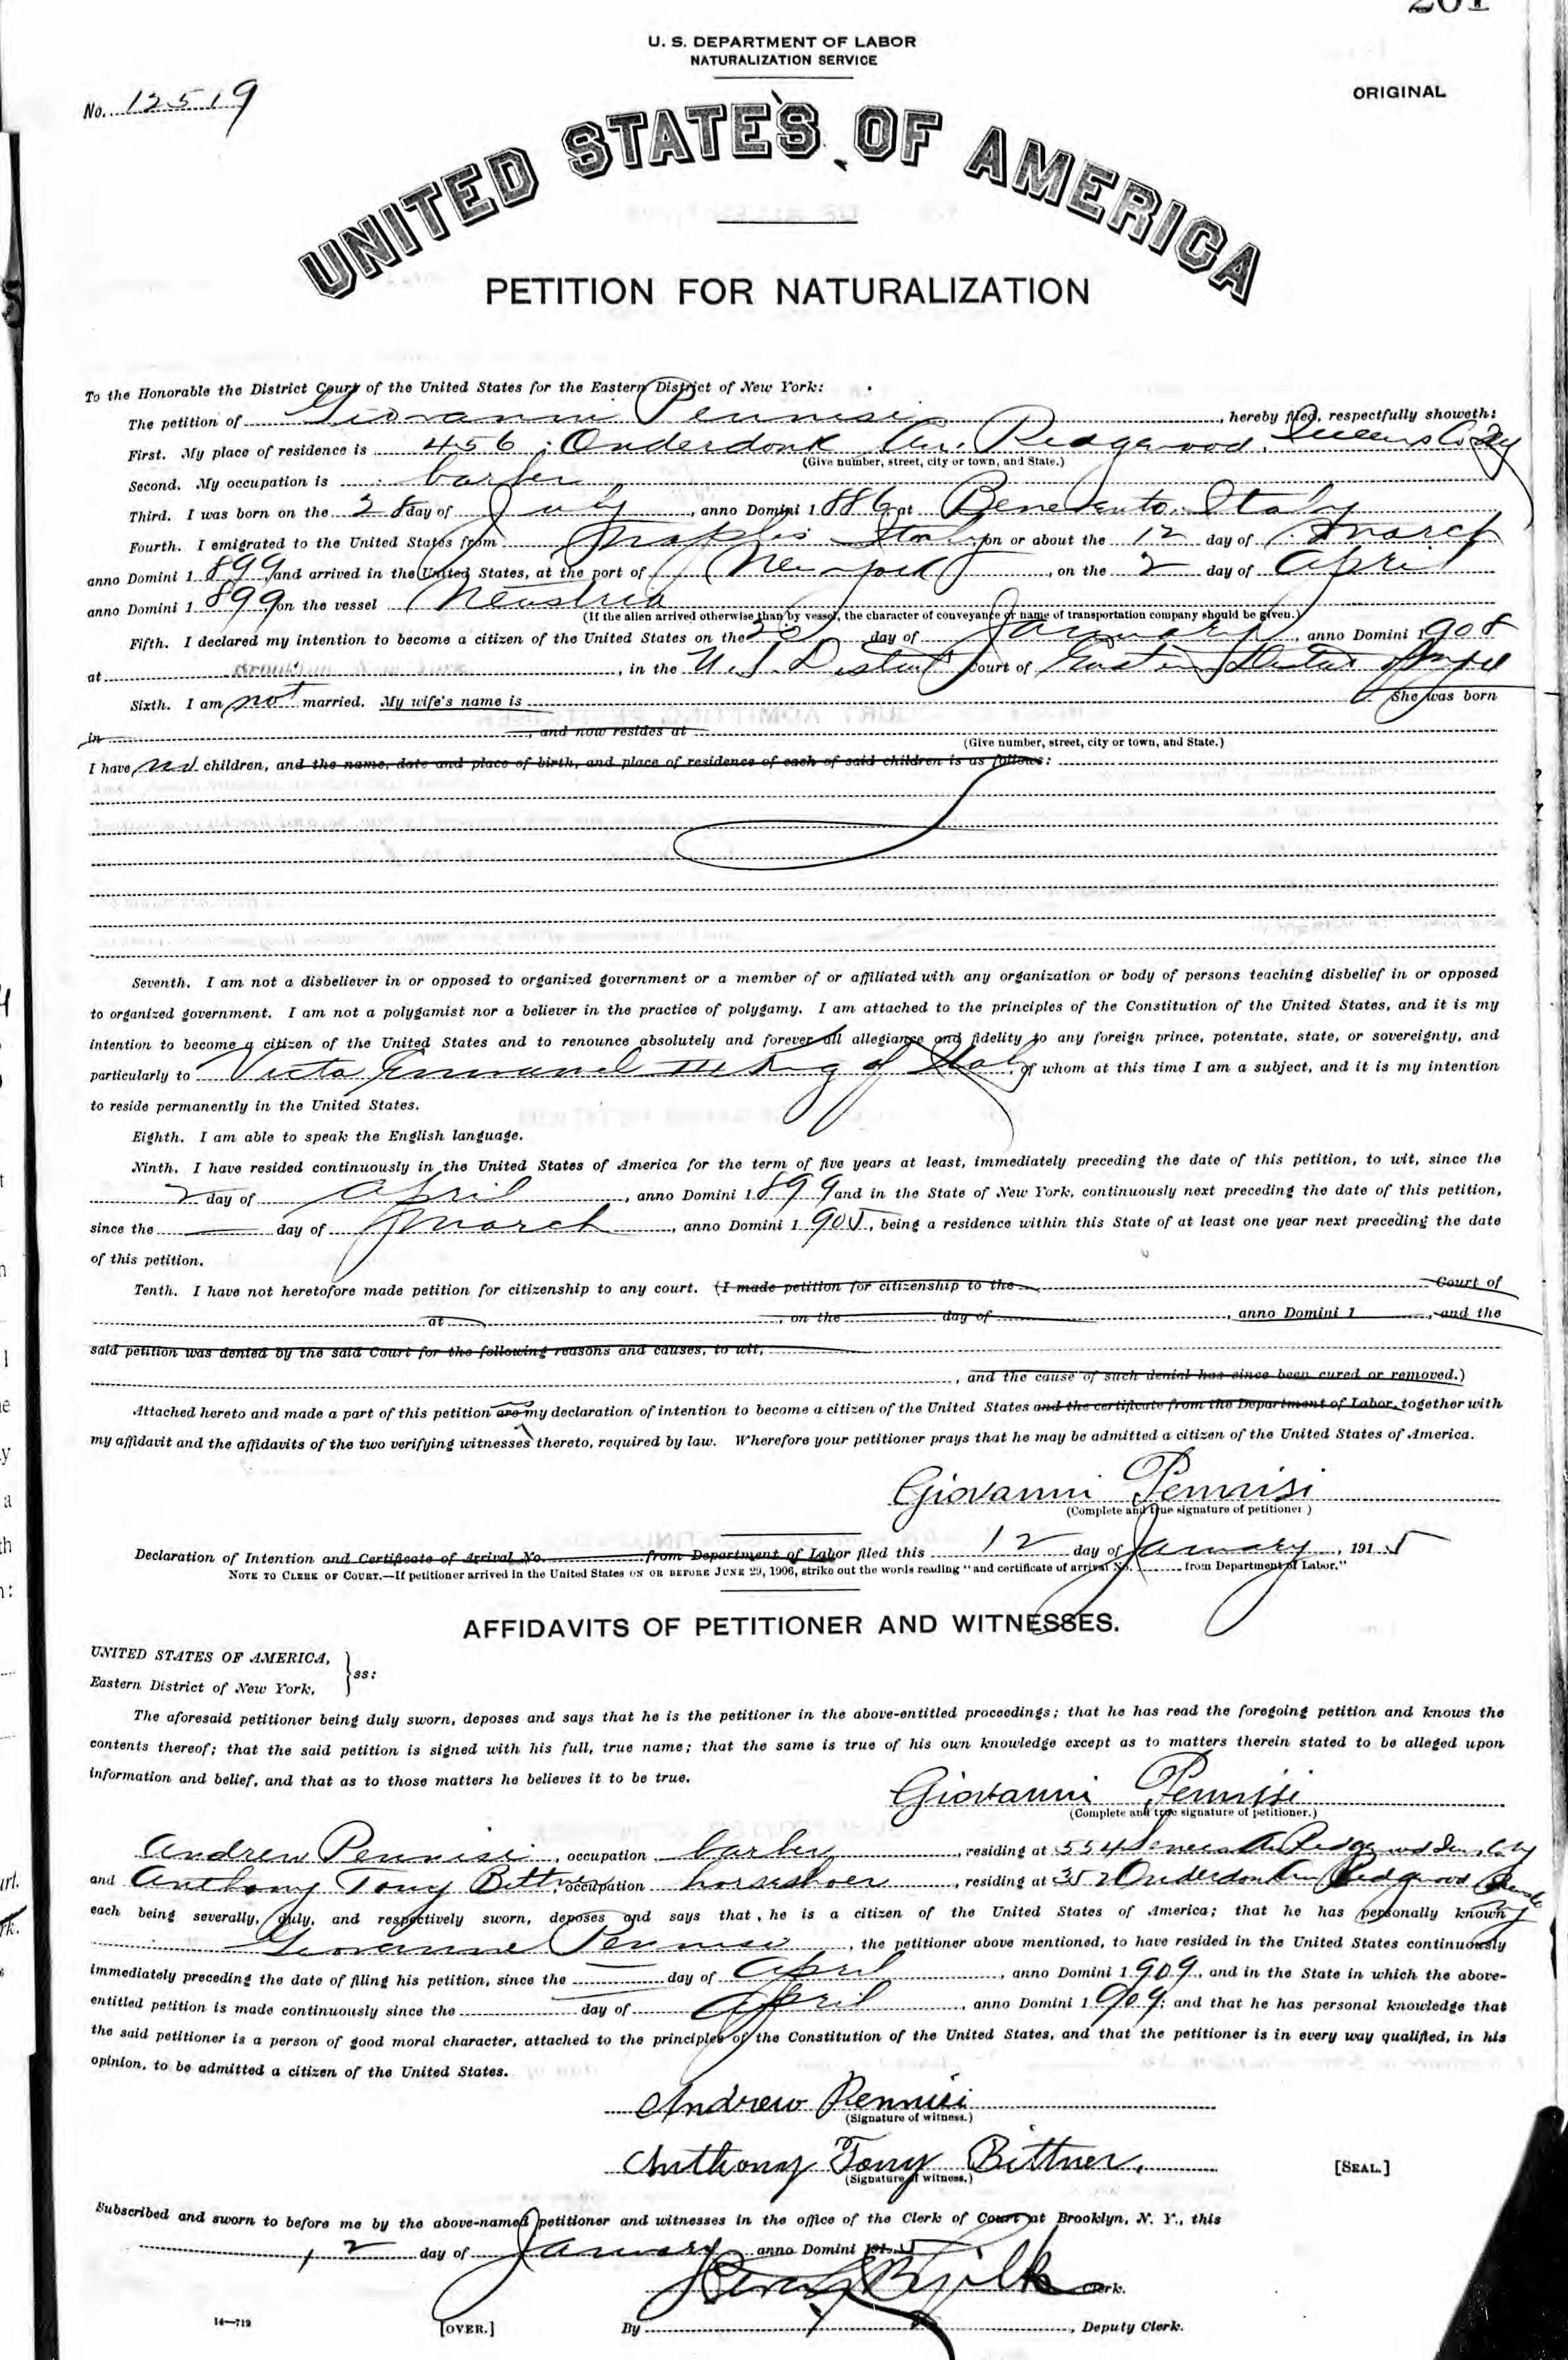 201
U. S. DEPARTMENT OF LABOR
NATURALIZATION SERVICE
No. 12519
ORIGINAL
UNITED STATES OF AMERICA
PETITION FOR NATURALIZATION
To the Honorable the District Court of the United States for the Eastern District of New York:
The petition of Giovanni Pennisi, hereby filed, respectfully showeth:
First. My place of residence is 456 Onderdonk Av. Ridgewood, Queens Co NY
(Give number, street, city or town, and State.)
Second. My occupation is barber
Third. I was born on the 28 day of July, anno Domini 1886, at Benevento, Italy
Fourth. I emigrated to the United States from Naples Italy on or about the 12 day of March
anno Domini 1899, and arrived in the United States, at the port of New York, on the 2 day of April
anno Domini 1899, on the vessel Neustria
(If the alien arrived otherwise than by vessel, the character of conveyance or name of transportation company should be given.)
Fifth. I declared my intention to become a citizen of the United States on the day of January, anno Domini 1908
at , in the U.S. District Court of Eastern District of
Sixth. I am not married. My wife's name is She was born
in , and now resides at
(Give number, street, city or town, and State.)
I have no children, and the name, date and place of birth, and place of residence of each of said children is as follows:
Seventh. I am not a disbeliever in or opposed to organized government or a member of or affiliated with any organization or body of persons teaching disbelief in or opposed
to organized government. I am not a polygamist nor a believer in the practice of polygamy. I am attached to the principles of the Constitution of the United States, and it is my
intention to become a citizen of the United States and to renounce absolutely and forever all allegiance and fidelity to any foreign prince, potentate, state, or sovereignty, and
particularly to Victor Emmanuel III King of Italy, of whom at this time I am a subject, and it is my intention
to reside permanently in the United States.
Eighth. I am able to speak the English language.
Ninth. I have resided continuously in the United States of America for the term of five years at least, immediately preceding the date of this petition, to wit, since the
2 day of April, anno Domini 1899 and in the State of New York, continuously next preceding the date of this petition,
since the day of March, anno Domini 1905, being a residence within this State of at least one year next preceding the date
of this petition.
Tenth. I have not heretofore made petition for citizenship to any court. (I made petition for citizenship to the Court of
at , on the day of , anno Domini 1 , and the
said petition was denied by the said Court for the following reasons and causes, to wit,
, and the cause of such denial has since been cured or removed.)
Attached hereto and made a part of this petition are my declaration of intention to become a citizen of the United States and the certificate from the Department of Labor, together with
my affidavit and the affidavits of the two verifying witnesses thereto, required by law. Wherefore your petitioner prays that he may be admitted a citizen of the United States of America.
Giovanni Pennisi
(Complete and true signature of petitioner.)
Declaration of Intention and Certificate of Arrival No. from Department of Labor filed this 12 day of January, 1915
NOTE TO CLERK OF COURT.—If petitioner arrived in the United States ON OR BEFORE JUNE 29, 1906, strike out the words reading "and certificate of arrival No. from Department of Labor."
AFFIDAVITS OF PETITIONER AND WITNESSES.
UNITED STATES OF AMERICA,
Eastern District of New York, ss:
The aforesaid petitioner being duly sworn, deposes and says that he is the petitioner in the above-entitled proceedings; that he has read the foregoing petition and knows the
contents thereof; that the said petition is signed with his full, true name; that the same is true of his own knowledge except as to matters therein stated to be alleged upon
information and belief, and that as to those matters he believes it to be true.
Giovanni Pennisi
(Complete and true signature of petitioner.)
Andrew Pennisi, occupation barber, residing at 554 Seneca Av Ridgewood
and Anthony Tony Bittner, occupation horseshoer, residing at 352 Onderdonk Av Ridgewood
each being severally, duly, and respectively sworn, deposes and says that he is a citizen of the United States of America; that he has personally known
Giovanni Pennisi, the petitioner above mentioned, to have resided in the United States continuously
immediately preceding the date of filing his petition, since the day of April, anno Domini 1909, and in the State in which the above-
entitled petition is made continuously since the day of April, anno Domini 1909; and that he has personal knowledge that
the said petitioner is a person of good moral character, attached to the principles of the Constitution of the United States, and that the petitioner is in every way qualified, in his
opinion, to be admitted a citizen of the United States.
Andrew Pennisi
(Signature of witness.)
Anthony Tony Bittner,
(Signature of witness.)
[SEAL.]
Subscribed and sworn to before me by the above-named petitioner and witnesses in the office of the Clerk of Court at Brooklyn, N. Y., this
12 day of January anno Domini 1915
Clerk.
14—719
[OVER.]
By , Deputy Clerk.